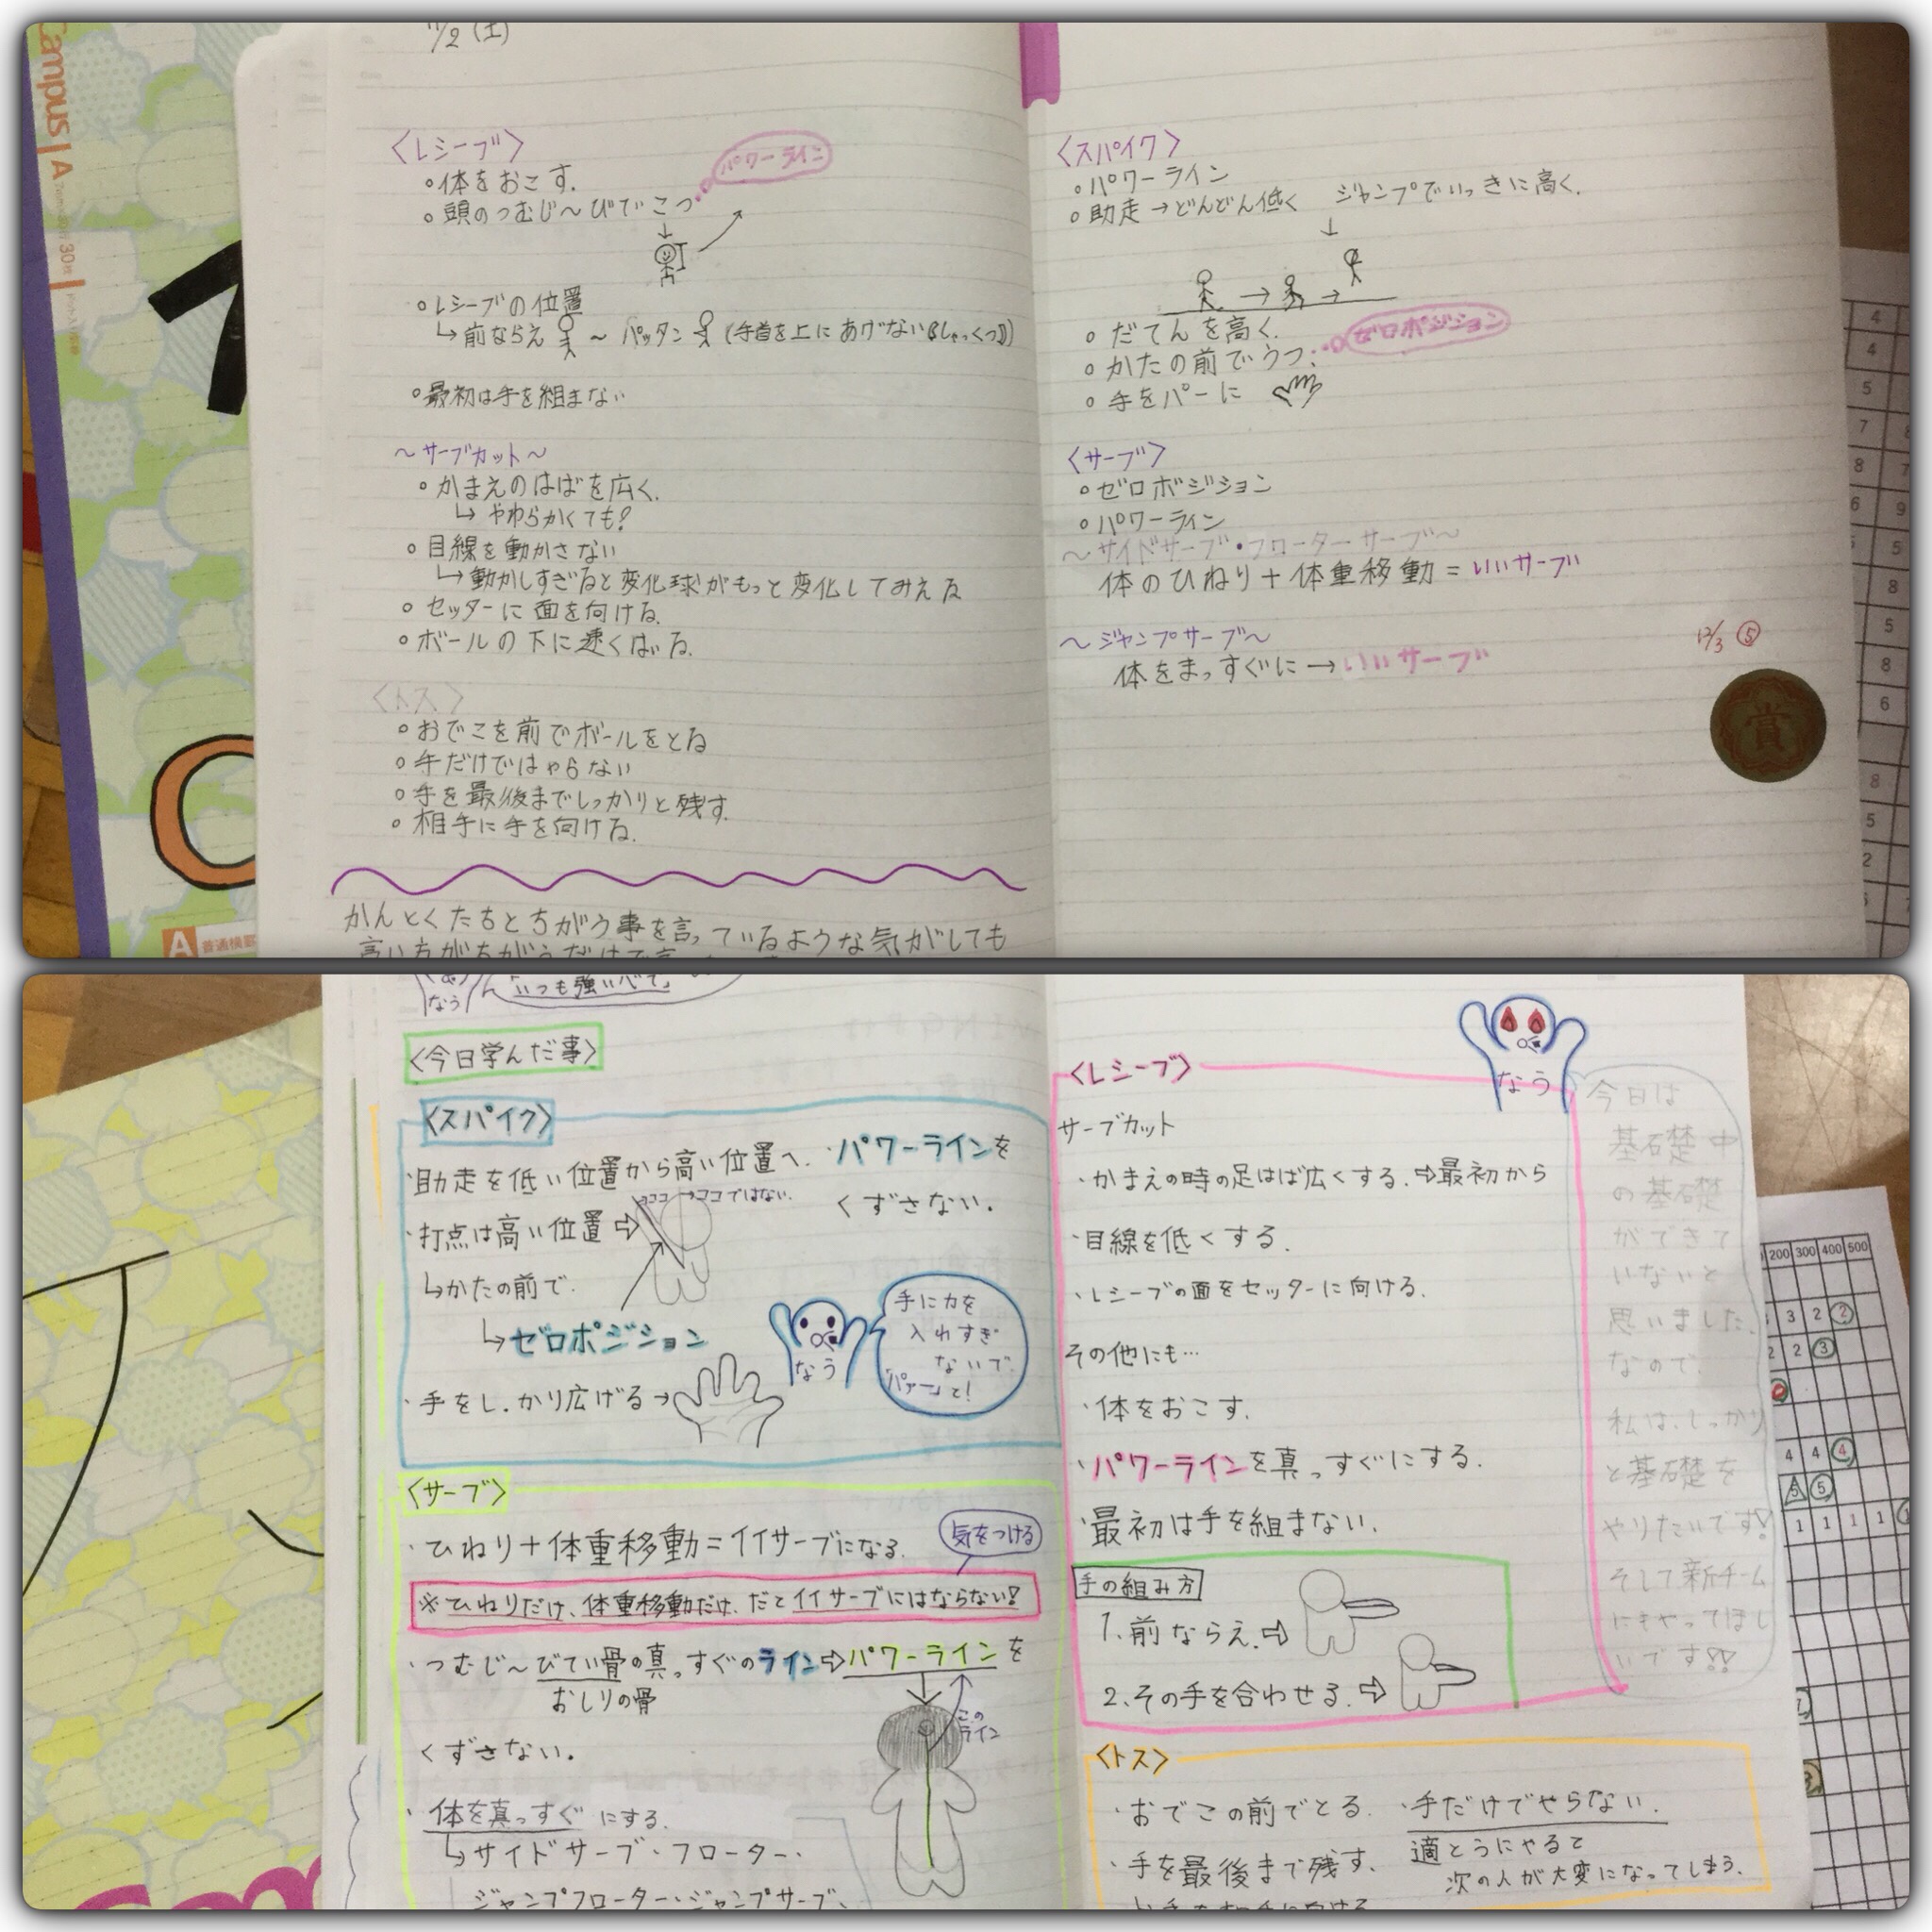 Campus A
30枚
11/2 (土)
〈レシーブ〉
パワーライン
○体をおこす.
○頭のつむじ〜びでこつ
○レシーブの位置
↳前ならえ 〜 パッタン (手首を上にあげない《しゃっくつ》)
○最初は手を組まない
〜サーブカット〜
○かまえのはばを広く.
↳やわらかくても!
○目線を動かさない
↳動かしすぎると変化球がもっと変化してみえる
○セッターに面を向ける.
○ボールの下に速くはいる.
〈トス〉
○おでこを前でボールをとる
○手だけではやらない
○手を最後までしっかりと残す.
○相手に手を向ける.
かんとくたちとちがう事を言っているような気がしても
言い方がちがうだけで言
A 普通横罫
〈スパイク〉
○パワーライン
○助走→どんどん低く ジャンプでいっきに高く.
○だてんを高く.
○かたの前でうつ. ゼロポジション
○手をパーに
〈サーブ〉
○ゼロポジション
○パワーライン
〜サイドサーブ・フローターサーブ〜
体のひねり+体重移動=いいサーブ
〜ジャンプサーブ〜
体をまっすぐに→いいサーブ
12/3 ⑤
賞
なう
「いつも強い心で」
〈今日学んだ事〉
〈スパイク〉
・助走を低い位置から高い位置へ.
・パワーラインを
くずさない.
ココ →ココではない.
・打点は高い位置⇨
↳かたの前で.
↳ゼロポジション
なう
手に力を
入れすぎ
ないで.
「パァー」と!
・手をしっかり広げる→
〈サーブ〉
・ひねり+体重移動=イイサーブになる.
気をつける
※ひねりだけ、体重移動だけ、だとイイサーブにはならない!
・つむじ〜びてい骨の真っすぐのライン⇨パワーラインを
おしりの骨
このライン
くずさない.
・体を真っすぐにする.
↳サイドサーブ・フローター・
ジャンプフローター・ジャンプサーブ、
〈レシーブ〉
なう
サーブカット
・かまえの時の足はば広くする.⇨最初から
・目線を低くする.
・レシーブの面をセッターに向ける.
その他にも…
・体をおこす.
・パワーラインを真っすぐにする.
・最初は手を組まない.
手の組み方
1.前ならえ.⇨
2.その手を合わせる.⇨
今日は
基礎中
の基礎
ができて
いないと
思いました.
なので.
私は、しっかり
と基礎を
やりたいです!
そして新チーム
にもやってほし
いです!!
〈トス〉
・おでこの前でとる.
・手だけでやらない.
適とうにやると
次の人が大変になってしまう.
・手を最後まで残す.
200 300 400 500
3 2 ②
2 2 ③
4 4 ④
5 ⑤
1 1 1 1